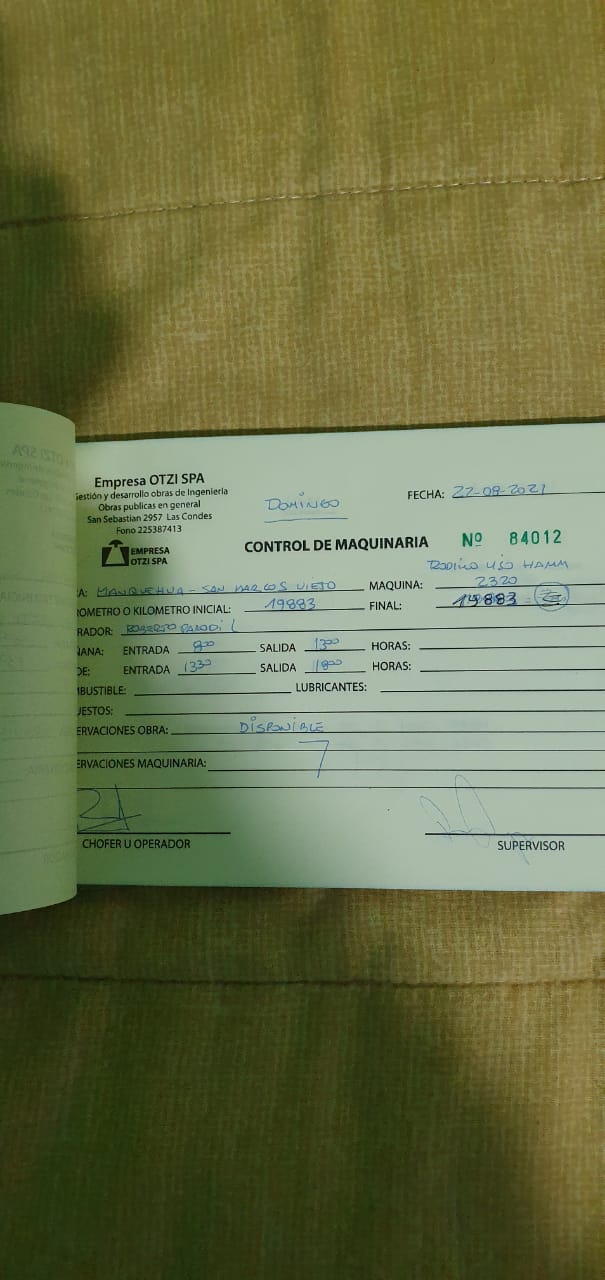 Empresa OTZI SPA
Gestión y desarrollo obras de Ingeniería
Obras publicas en general
San Sebastian 2957 Las Condes
Fono 225387413
EMPRESA
OTZI SPA
DOMINGO
FECHA: 22-08-2021
CONTROL DE MAQUINARIA
Nº 84012
HAMM
A: MANQUEHUA - SAN MARCOS VIEJO MAQUINA: 2320
ROMETRO O KILOMETRO INICIAL: 19883 FINAL: 19883
RADOR: ROBERTO PARODI L
ÑANA: ENTRADA 8:00 SALIDA 13:00 HORAS:
DE: ENTRADA 13:30 SALIDA 18:00 HORAS:
MBUSTIBLE: LUBRICANTES:
UESTOS:
ERVACIONES OBRA: DISPONIBLE
ERVACIONES MAQUINARIA:
CHOFER U OPERADOR
SUPERVISOR